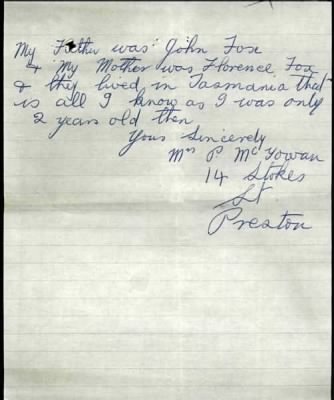 My Father was John Fox
& my Mother was Florence Fox
& they lived in Tasmania that
is all I know as I was only
2 years old then
Yours Sincerely
Mrs P McGowan
14 Stokes
St
Preston